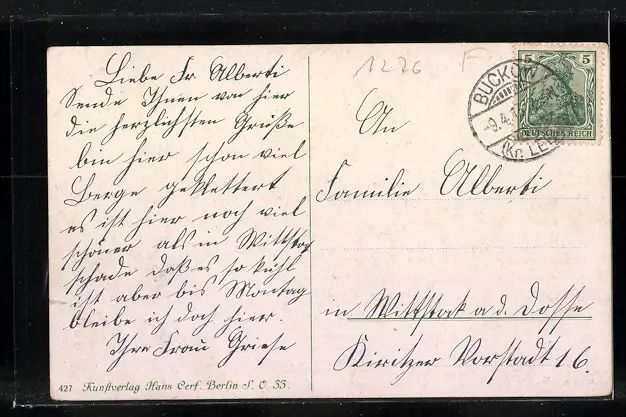 Liebe Fr Alberti
Sende Ihnen von hier
die herzlichsten Grüße
bin hier schon viel
Berge geklettert
es ist hier noch viel
schöner als in Wittstog
schade daß es so kühl
ist aber bis Montag
bleibe ich doch hier.
Ihre Frau Griese
427 Kunstverlag Hans Cerf. Berlin S. O. 33.
1276 F
5 5
DEUTSCHES REICH
BUCKOW
-9.4.
(Kr. LEB
An
Familie Alberti
in Wittstock a. d. Dosse
Kiritzer Vorstadt 16.